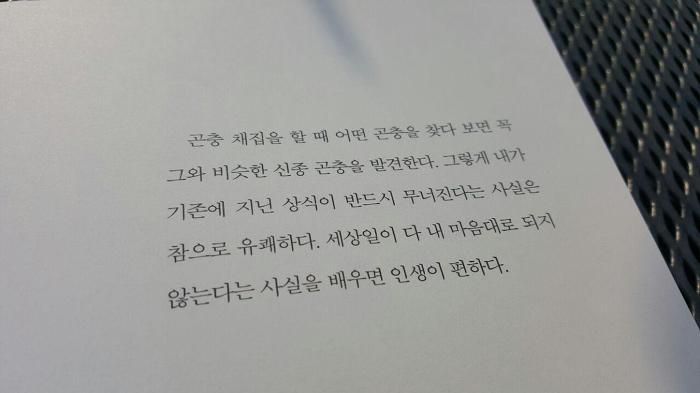 곤충 채집을 할 때 어떤 곤충을 찾다 보면 꼭
그와 비슷한 신종 곤충을 발견한다. 그렇게 내가
기존에 지닌 상식이 반드시 무너진다는 사실은
참으로 유쾌하다. 세상일이 다 내 마음대로 되지
않는다는 사실을 배우면 인생이 편하다.